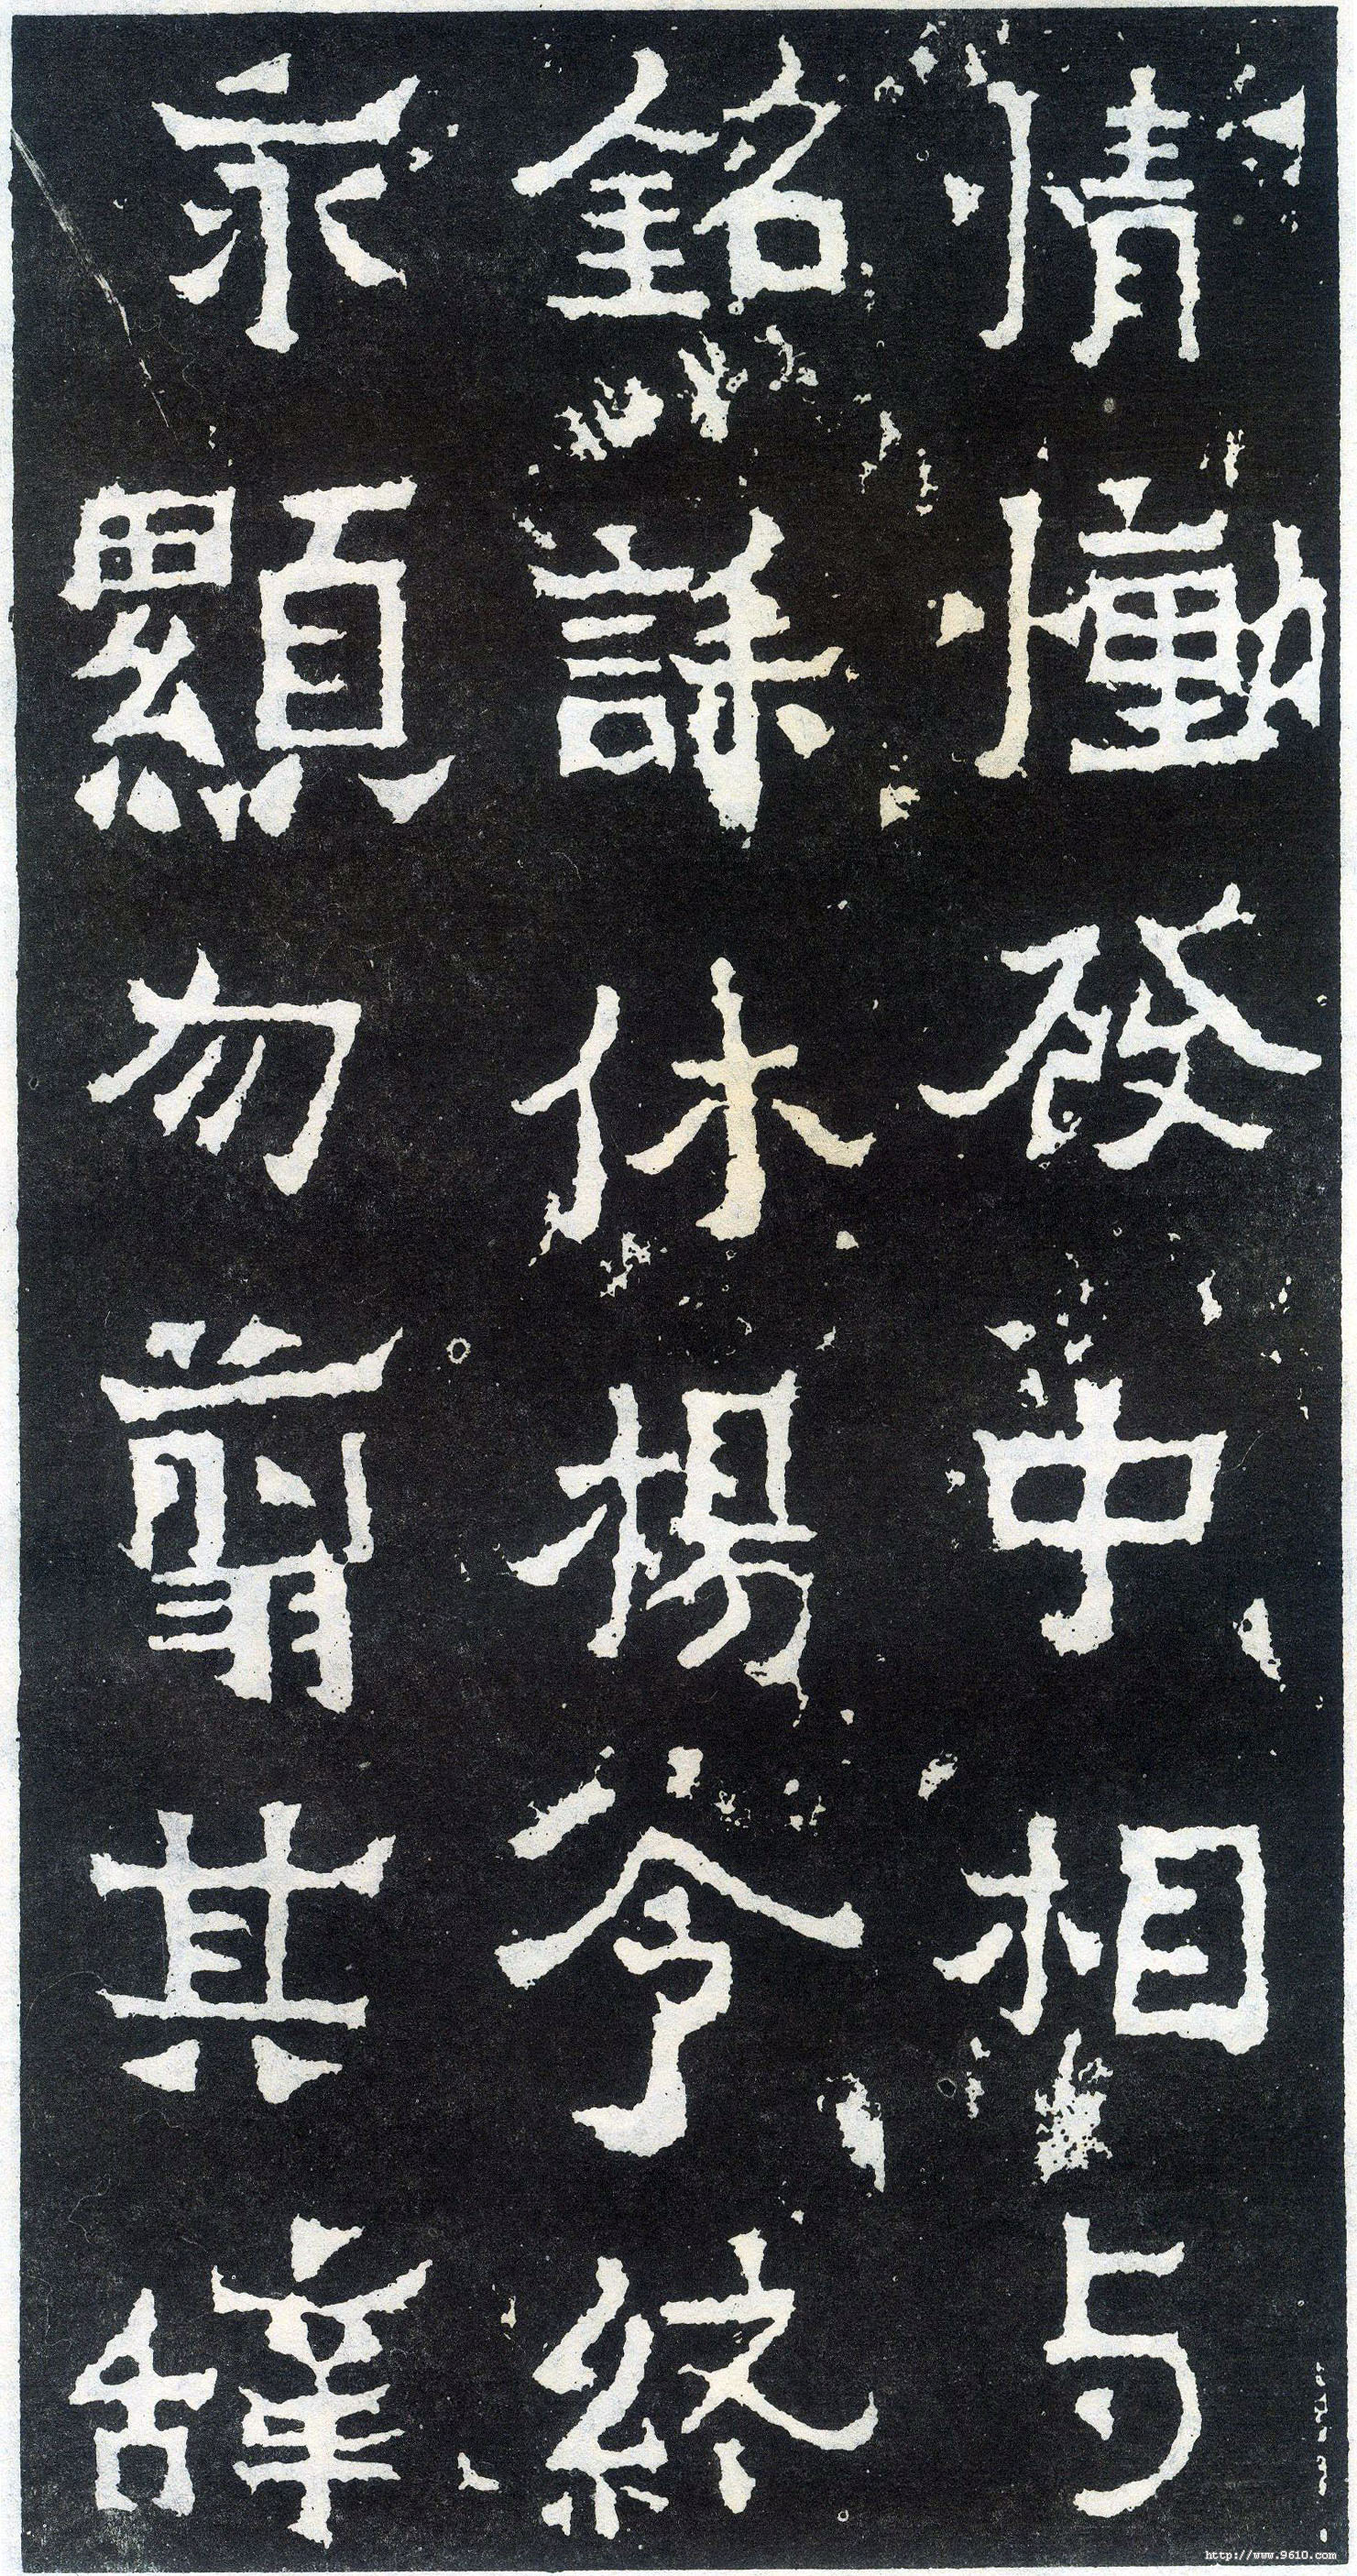 情慟发中相与
銘誄休揚令終
永顯勿翦其辞
http://www.9610.com